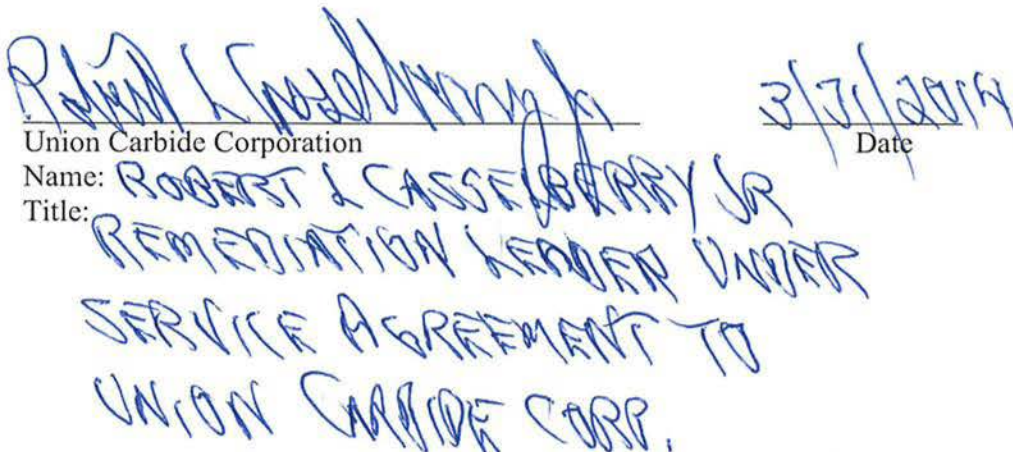 Robert L Casselberry Jr 3/31/2014
Union Carbide Corporation Date
Name: ROBERT L CASSELBERRY JR
Title: REMEDIATION LEADER UNDER
SERVICE AGREEMENT TO
UNION CARBIDE CORP.